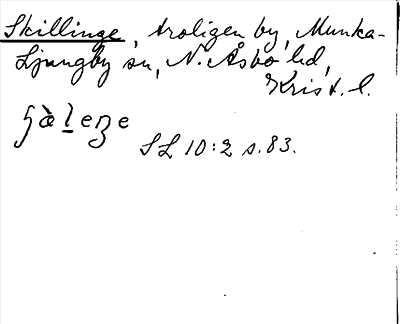 Skillinge, troligen by, Munka-
Ljungby sn, N. Åsbo hd,
Krist. l.
ʂὰl̠eŋe
SL 10:2 s. 83.